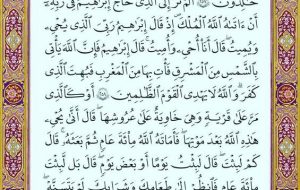 خَٰلِدُونَ ۝ أَلَمْ تَرَ إِلَى ٱلَّذِى حَآجَّ إِبْرَٰهِـۧمَ فِى رَبِّهِۦٓ
أَنْ ءَاتَىٰهُ ٱللَّهُ ٱلْمُلْكَ إِذْ قَالَ إِبْرَٰهِـۧمُ رَبِّىَ ٱلَّذِى يُحْىِۦ
وَيُمِيتُ قَالَ أَنَا۠ أُحْىِۦ وَأُمِيتُ قَالَ إِبْرَٰهِـۧمُ فَإِنَّ ٱللَّهَ يَأْتِى
بِٱلشَّمْسِ مِنَ ٱلْمَشْرِقِ فَأْتِ بِهَا مِنَ ٱلْمَغْرِبِ فَبُهِتَ ٱلَّذِى
كَفَرَ وَٱللَّهُ لَا يَهْدِى ٱلْقَوْمَ ٱلظَّٰلِمِينَ ۝ أَوْ كَٱلَّذِى
مَرَّ عَلَىٰ قَرْيَةٍ وَهِىَ خَاوِيَةٌ عَلَىٰ عُرُوشِهَا قَالَ أَنَّىٰ يُحْىِۦ
هَٰذِهِ ٱللَّهُ بَعْدَ مَوْتِهَا فَأَمَاتَهُ ٱللَّهُ مِا۟ئَةَ عَامٍ ثُمَّ بَعَثَهُۥ قَالَ
كَمْ لَبِثْتَ قَالَ لَبِثْتُ يَوْمًا أَوْ بَعْضَ يَوْمٍ قَالَ بَل لَّبِثْتَ
مِا۟ئَةَ عَامٍ فَٱنظُرْ إِلَىٰ طَعَامِكَ وَشَرَابِكَ لَمْ يَتَسَنَّهْ